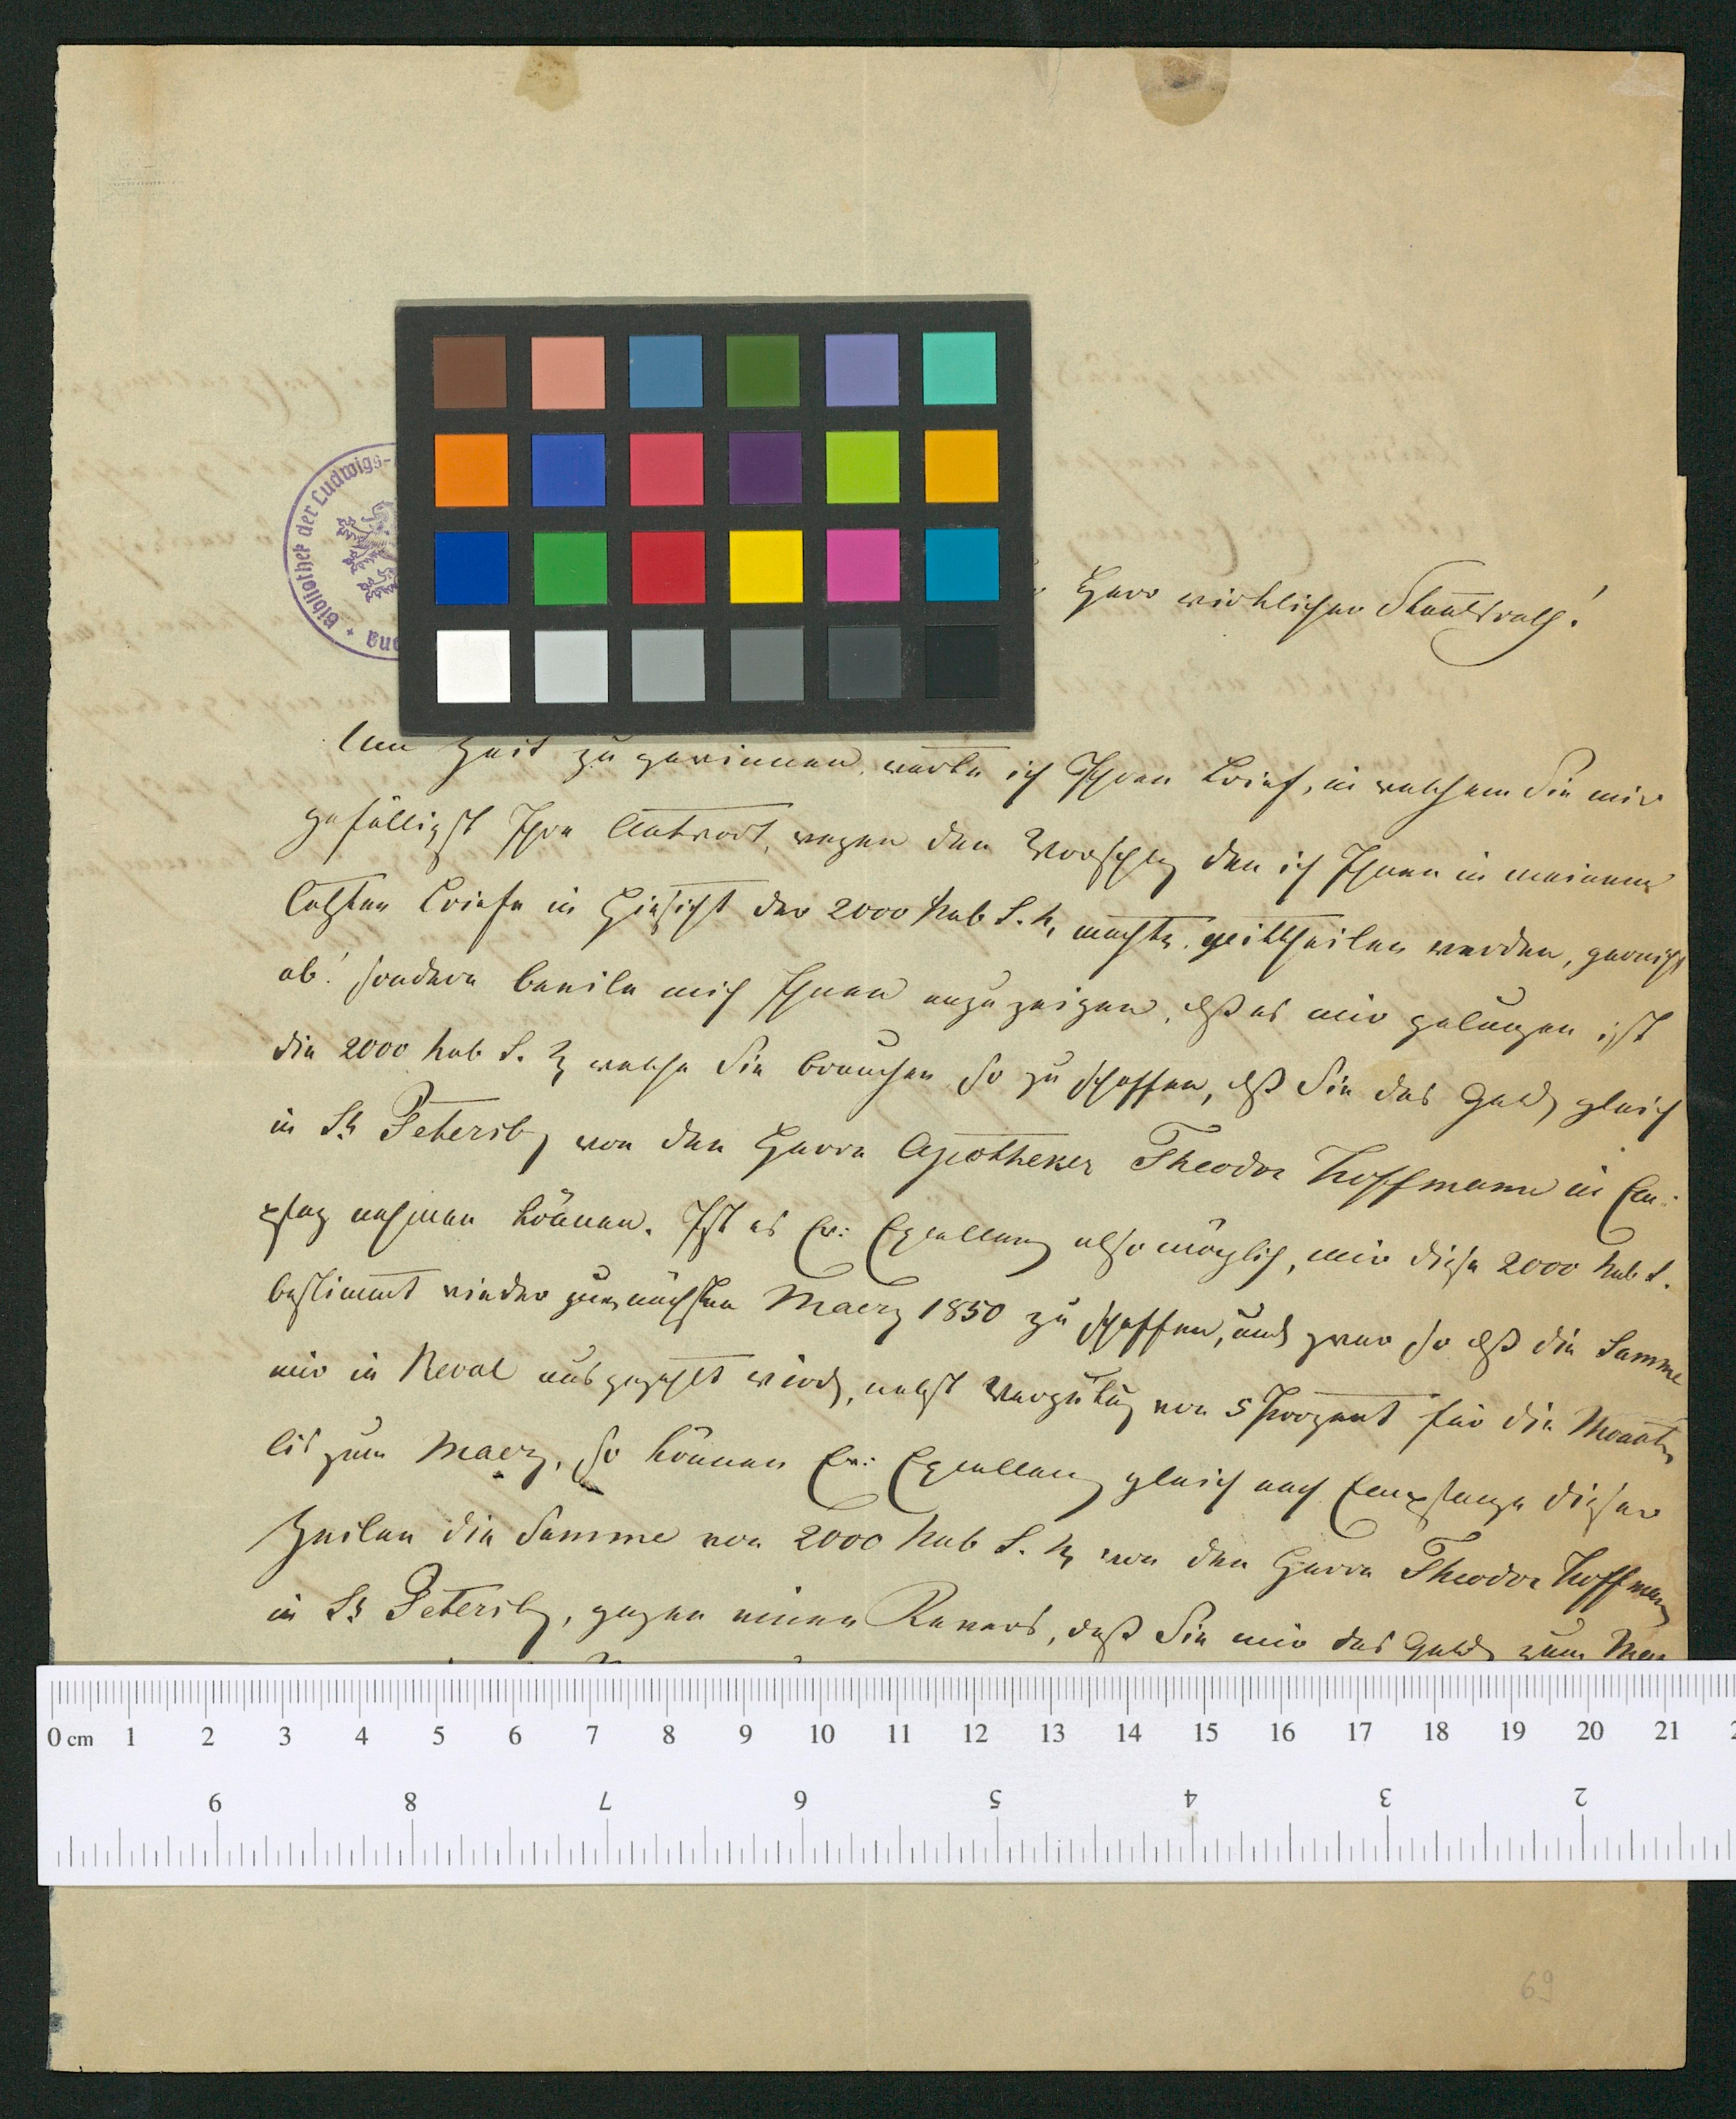 Bibliothek der Ludwigs-
Herr wirklicher Staatsrath!
Um Zeit zu gewinnen, warte ich Ihren Brief, in welchem Sie mir
gefälligst Ihre Antwort, wegen den Vorschlag den ich Ihnen in meinem
letzten Briefe in Hinsicht der 2000 Rub S. M. machte, mittheilen werden, garnicht
ab! sondern beeile mich Ihnen anzuzeigen, dß es mir gelungen ist
die 2000 Rub S. M. welche Sie brauchen so zu schaffen, dß Sie das Geld gleich
in St Petersb von den Herrn Apotheker Theodor Hoffmann in Em-
pfag nehmen können. Ist es Ew: Excellenz also möglich, mir diese 2000 Rub S.
bestimmt wieder zum nächsten Maerz 1850 zu schaffen, und zwar so dß die Summe
mir in Reval ausgezahlt wird, nebst Vergütug von 5 Prozent für die Monate
bis zum Maerz, so können Ew: Excellenz gleich nach Empfange dieser
Zeilen die Summe von 2000 Rub S. M. von den Herrn Theodor Hoffmann
in St Petersb, gegen einen Revers, daß Sie mir das Geld zum
0 cm 1 2 3 4 5 6 7 8 9 10 11 12 13 14 15 16 17 18 19 20 21
9 8 7 6 5 4 3 2
69